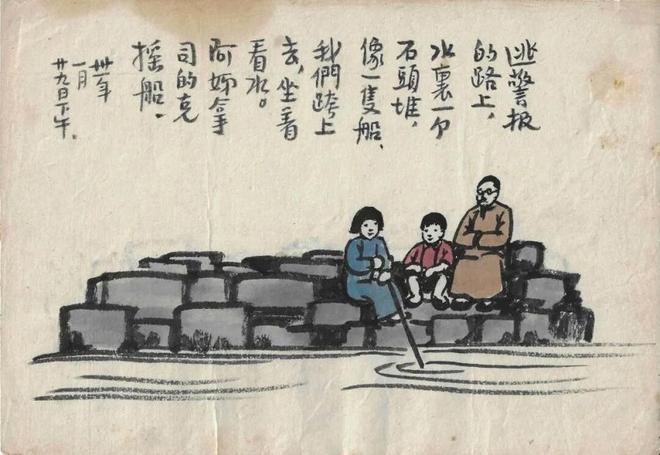 逃警报
的路上，
水裏一个
石頭堆，
像一隻船，
我們跨上
去，坐着
看水。
阿姊拿
司的克
摇船.
卅一年
一月
廿九日下午.